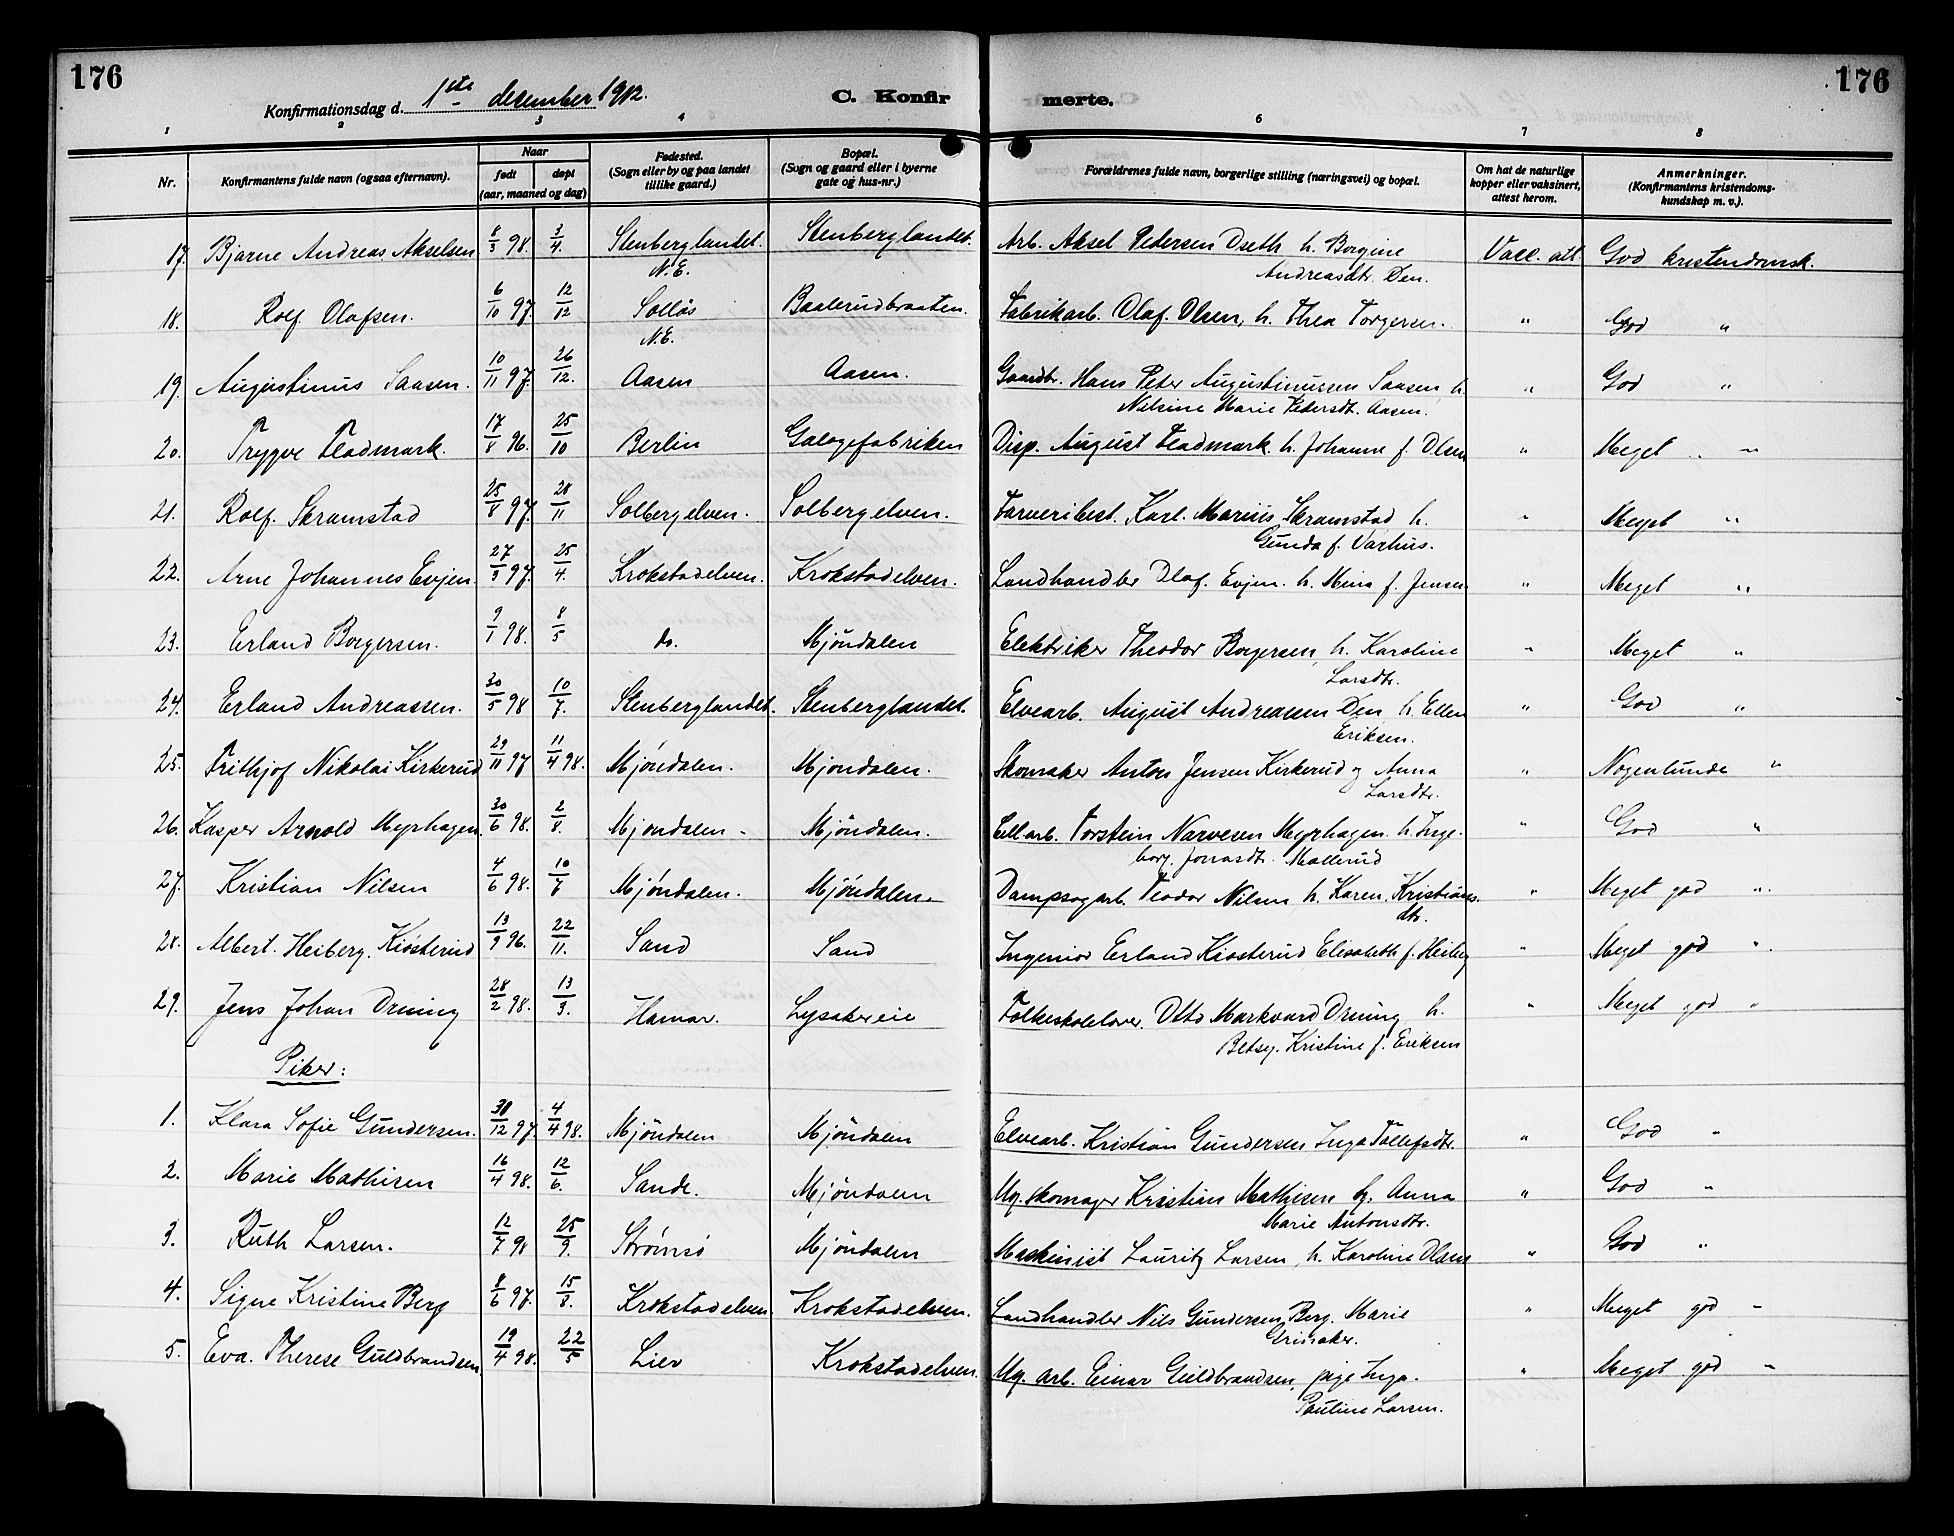 176
176
Konfirmationsdag d. 1ste desember 1912.
C. Konfir
merte.
1 2 3 4 5 6 7 8
Nr. Konfirmantens fulde navn (ogsaa efternavn). Naar født døpt (aar, maaned og dag) Fødested. (Sogn eller by og paa landet tillike gaard.) Bopæl. (Sogn og gaard eller i byerne gate og hus-nr.) Forældrenes fulde navn, borgerlige stilling (næringsvei) og bopæl. Om hat de naturlige kopper eller vaksinert, attest herom. Anmerkninger. (Konfirmantens kristendoms-kundskap m. v.).
17. Bjarne Andreas Akselsen 8/3 98. 3/4. Stenberglandet. Stenberglandet. Arb. Aksel Pedersen h. Borgine Vacc. att God kristendomsk.
N.E. Andreasdtr.
18. Rolf Olafsen. 6/10 97. 12/12 Solløs Baalerudbraaten. Fabrikarb. Olaf Olsen, h. Thea Torgersen. " God "
N.E.
19. Augustinus Saasen. 10/11 97. 26/12. Aasen Aasen. Gaardbr. Hans Peter Augustinussen Saasen h. " God "
Nilsine Marie Pedersdtr. Aasen.
20. Trygve Fladmark. 17/8 96. 25/10 Berlin Galogefabriken Disp. August Fladmark. h. Johanne f. Olsen " Meget " "
21. Rolf. Skramstad 25/8 97. 28/11 Solbergelven. Solbergelven. Farveribest. Karl. Marius Skramstad h. " Meget "
Gunda f. Varhus.
22. Arne Johannes Evjen 27/3 97. 25/4. Krokstadelven. Krokstadelven. Landhandler Olaf. Evjen. h. Mina f. Jensen " Meget "
23. Erland Borgersen. 9/1 98. 8/5 do. Mjöndalen Elektriker Theodor Borgersen, h. Karoline " Meget "
Larsdtr.
24. Erland Andreassen. 30/5 98 10/7. Stenberglandet. Stenberglandet. Elvearb. August Andreassen h. Ellen " God "
Eriksen.
25. Frithjof Nikolai Kirkerud 29/11 97 11/4 98. Mjöndalen. Mjöndalen. Skomaker Anton Jensen Kirkerud og Anna " Nogenlunde "
Larsdtr.
26. Kasper Arnold Myrhagen. 30/6 98. 2/8. Mjöndalen - Mjöndalen. Cell.arb. Torstein Narvesen Myrhagen. h. Inge- " God "
borg. Jonasdtr. Møllerud
27. Kristian Nilsen 4/6 98. 10/7 Mjöndalen. Mjöndalen. Dampsagarb. Teodor Nilsen h. Karen Kristians- " Meget god "
dtr.
28. Albert. Heiberg. Kiøsterud 13/9 96. 22/11. Sand Sand Ingeniør Erland Kiøsterud Elisabeth f. Heiberg " Meget god "
29. Jens Johan Drøning 28/2 98. 13/3. Hamar. Lysakereie Folkeskolelærer. Otto Markvard h. " Meget god "
Betsy. Kristine f. Eriksen
Piker:
1. Klara Sofie Gundersen. 30/12 97. 4/4 98. Mjöndalen Mjöndalen Elvearb. Kristian Gundersen, Inga Tollefsdtr. " God "
2. Marie Mathisen 16/4 98. 12/6. Sande. Mjöndalen Ug. skomager Kristian Mathisen og. Anna " God "
Marie Antonsdtr.
3. Ruth Larsen. 12/7 98 25/9. Strømsø Mjöndalen Maskinist Lauritz Larsen, h. Karoline Olsen " God "
4. Signe Kristine Berg 8/6 97. 15/8. Krokstadelven. Krokstadelven. Landhandler Nils Gundersen Berg. Marie " Meget god "
Grinaker.
5. Eva. Therese Guldbrandsen 19/4 98. 22/5 Lier Krokstadelven. Ug. arb. Einar Guldbrandsen, pige Inga. " Meget god "
Pauline Larsen.